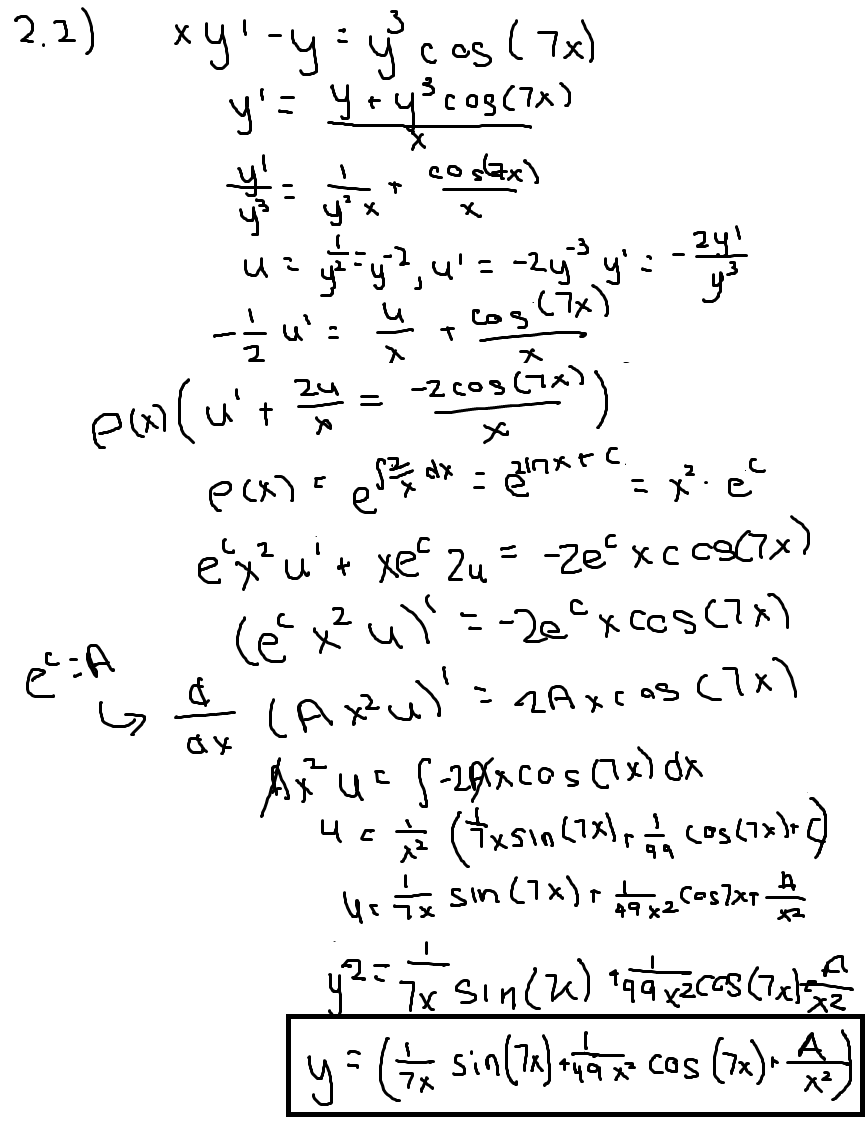 2.2) xy' - y = y³ cos(7x)
y' = (y + y³ cos(7x))/x
y'/y³ = 1/(y²x) + cos(7x)/x
u = 1/y² = y⁻², u' = -2y⁻³ y' = -2y'/y³
-1/2 u' = u/x + cos(7x)/x
ρ(x)(u' + 2u/x = -2cos(7x)/x)
ρ(x) = e^(∫2/x dx) = e^(2lnx + c) = x² · e^c
e^c x² u' + xe^c 2u = -2e^c x cos(7x)
(e^c x² u)' = -2e^c x cos(7x)
e^c = A
↳ d/dx (Ax²u)' = 2Ax cos(7x)
Ax²u = ∫-2Ax cos(7x) dx
u = 1/x² (1/7 x sin(7x) + 1/49 cos(7x) + C)
u = 1/(7x) sin(7x) + 1/(49x²) cos7x + A/x²
y² = 1/(7x) sin(7x) + 1/(49x²) cos(7x) + A/x²
y = (1/(7x) sin(7x) + 1/(49x²) cos(7x) + A/x²)